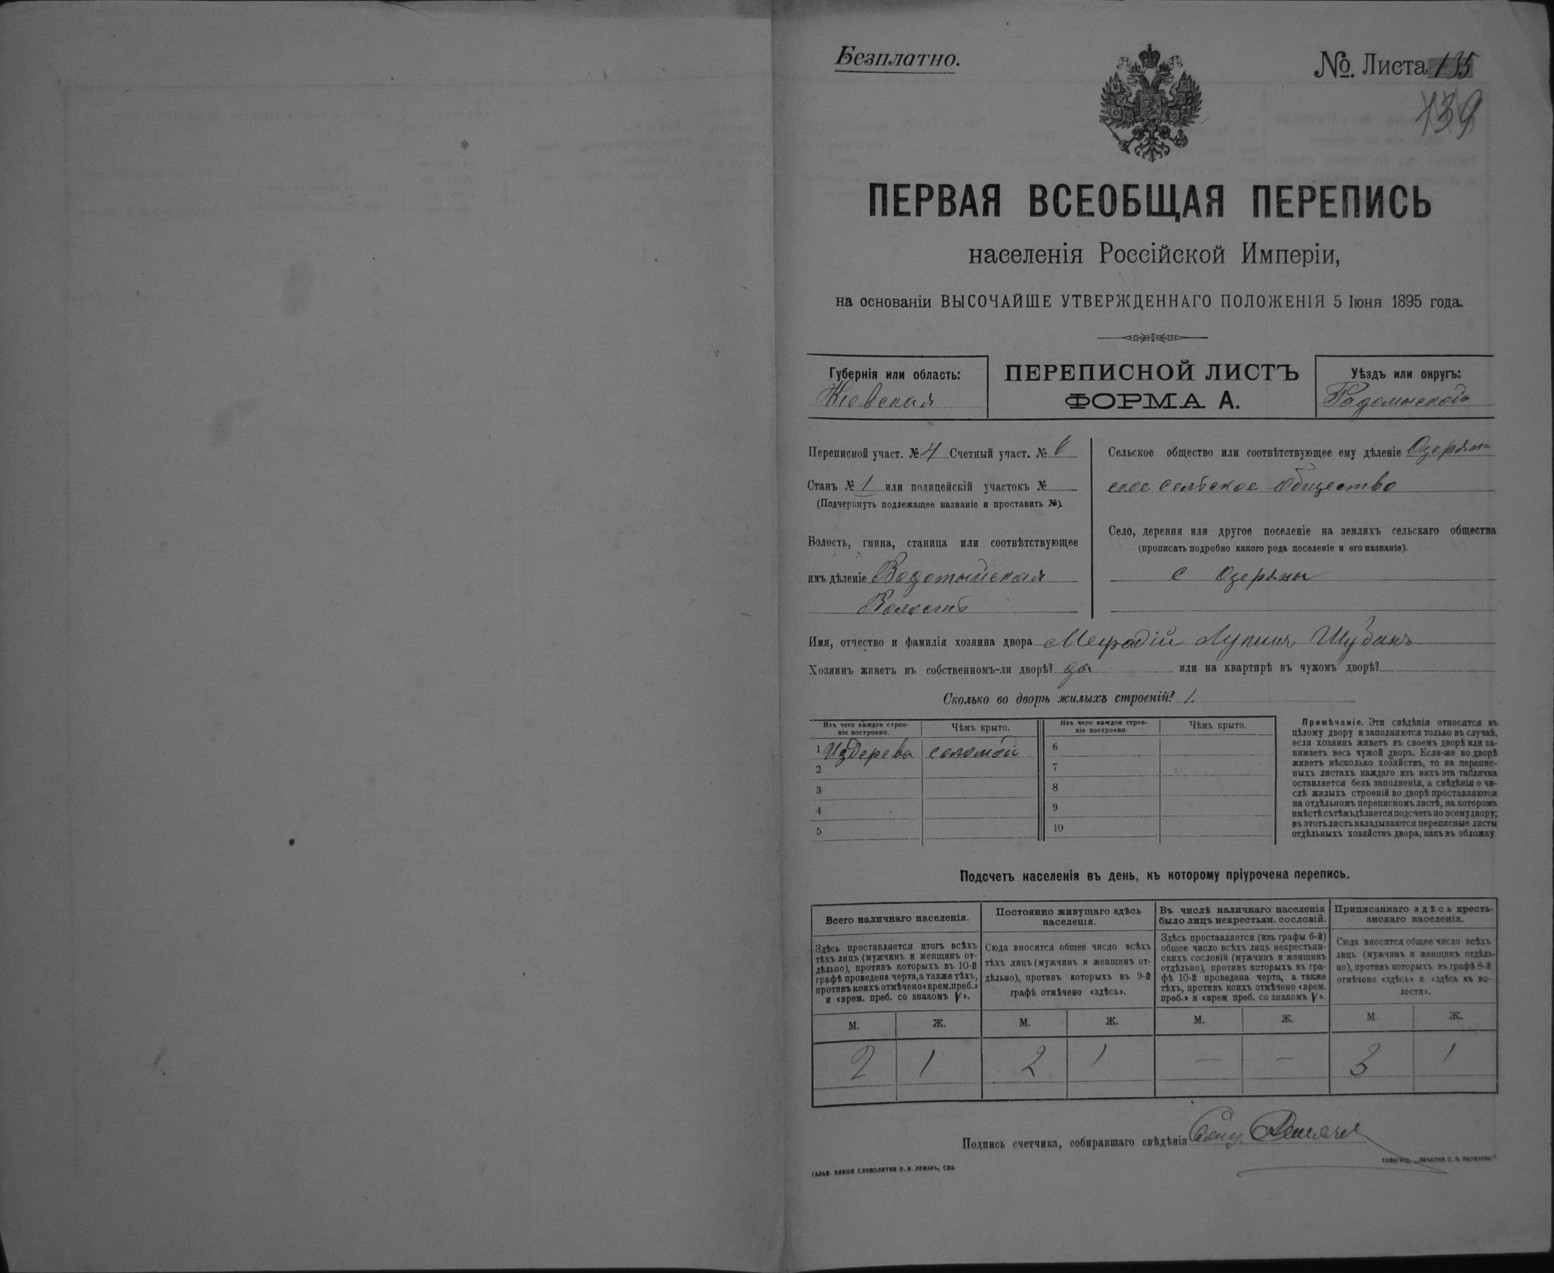 Безплатно.
№. Листа 135
139
ПЕРВАЯ ВСЕОБЩАЯ ПЕРЕПИСЬ
населенія Россійской Имперіи,
на основаніи ВЫСОЧАЙШЕ УТВЕРЖДЕННАГО ПОЛОЖЕНІЯ 5 Іюня 1895 года.
Губернія или область:
Кіевская
ПЕРЕПИСНОЙ ЛИСТЪ
ФОРМА А.
Уѣздъ или округъ:
Радомыскаго
Переписной участ. № 4 Счетный участ. № 6
Станъ № 1 или полицейскій участокъ №
(Подчеркнуть подлежащее названіе и проставить №).
Волость, гмина, станица или соотвѣтствующее
имъ дѣленіе Водотыйская
Волость
Сельское общество или соотвѣтствующее ему дѣленіе Озерян-
ское сельское общество
Село, деревня или другое поселеніе на земляхъ сельскаго общества
(прописать подробно какого рода поселеніе и его названіе).
с Озеряны
Имя, отчество и фамилія хозяина двора Мефодій Лукинъ Шубанъ
Хозяинъ живетъ въ собственномъ-ли дворѣ? да или на квартирѣ въ чужомъ дворѣ?
Сколько во дворѣ жилыхъ строеній? 1.
Изъ чего каждое строе-
ніе построено.
Чѣмъ крыто.
Изъ чего каждое строе-
ніе построено
Чѣмъ крыто.
1 Издерева соломой
2
3
4
5
6
7
8
9
10
Примѣчаніе. Эти свѣдѣнія относятся къ
цѣлому двору и заполняются только въ случаѣ,
если хозяинъ живетъ въ своемъ дворѣ или за-
нимаетъ весь чужой дворъ. Если-же во дворѣ
живетъ нѣсколько хозяйствъ, то на перепис-
ныхъ листахъ каждаго изъ нихъ эта табличка
оставляется безъ заполненія, а свѣдѣнія о чи-
слѣ жилыхъ строеній во дворѣ проставляются
на отдѣльномъ переписномъ листѣ, на которомъ
вмѣстѣ съ тѣмъ дѣлается подсчетъ по всему двору;
въ этотъ листъ вкладываются переписные листы
отдѣльныхъ хозяйствъ двора, какъ въ обложку
Подсчетъ населенія въ день, къ которому пріурочена перепись.
Всего наличнаго населенія.
Здѣсь проставляется итогъ всѣхъ
тѣхъ лицъ (мужчинъ и женщинъ от-
дѣльно), противъ которыхъ въ 10-й
графѣ проведена черта, а также тѣхъ,
противъ коихъ отмѣчено «врем. преб.»
и «врем. преб. со знакомъ V».
Постоянно живущаго здѣсь
населенія.
Сюда вносится общее число всѣхъ
тѣхъ лицъ (мужчинъ и женщинъ от-
дѣльно), противъ которыхъ въ 9-й
графѣ отмѣчено «здѣсь».
Въ числѣ наличнаго населенія
было лицъ некрестьян. сословій.
Здѣсь проставляется (изъ графы 6-й)
общее число всѣхъ лицъ некрестьян-
скихъ сословій (мужчинъ и женщинъ
отдѣльно), противъ которыхъ въ гра-
фѣ 10-й проведена черта, а также
тѣхъ, противъ коихъ отмѣчено «врем.
преб.» и «врем преб. со знакомъ V».
Приписаннаго здѣсь кресть-
янскаго населенія.
Сюда вносится общее число всѣхъ
лицъ (мужчинъ и женщинъ отдѣль-
но), противъ которыхъ въ графѣ 8-й
отмѣчено «здѣсь» и «здѣсь въ во-
лости».
М. Ж. М. Ж. М. Ж. М. Ж.
2 1 2 1 — — 3 1
Подпись счетчика, собиравшаго свѣдѣнія
ГАЛЬВ. КЛИШЕ СЛОВОЛИТНИ О. И. ЛЕМАНЪ, СПБ